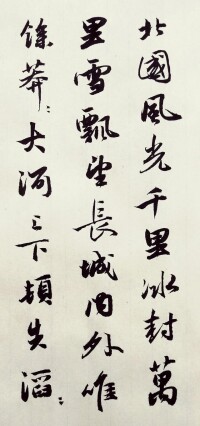 北國風光千里冰封萬
里雪飄望長城內外唯
餘莽〻大河上下頓失滔〻